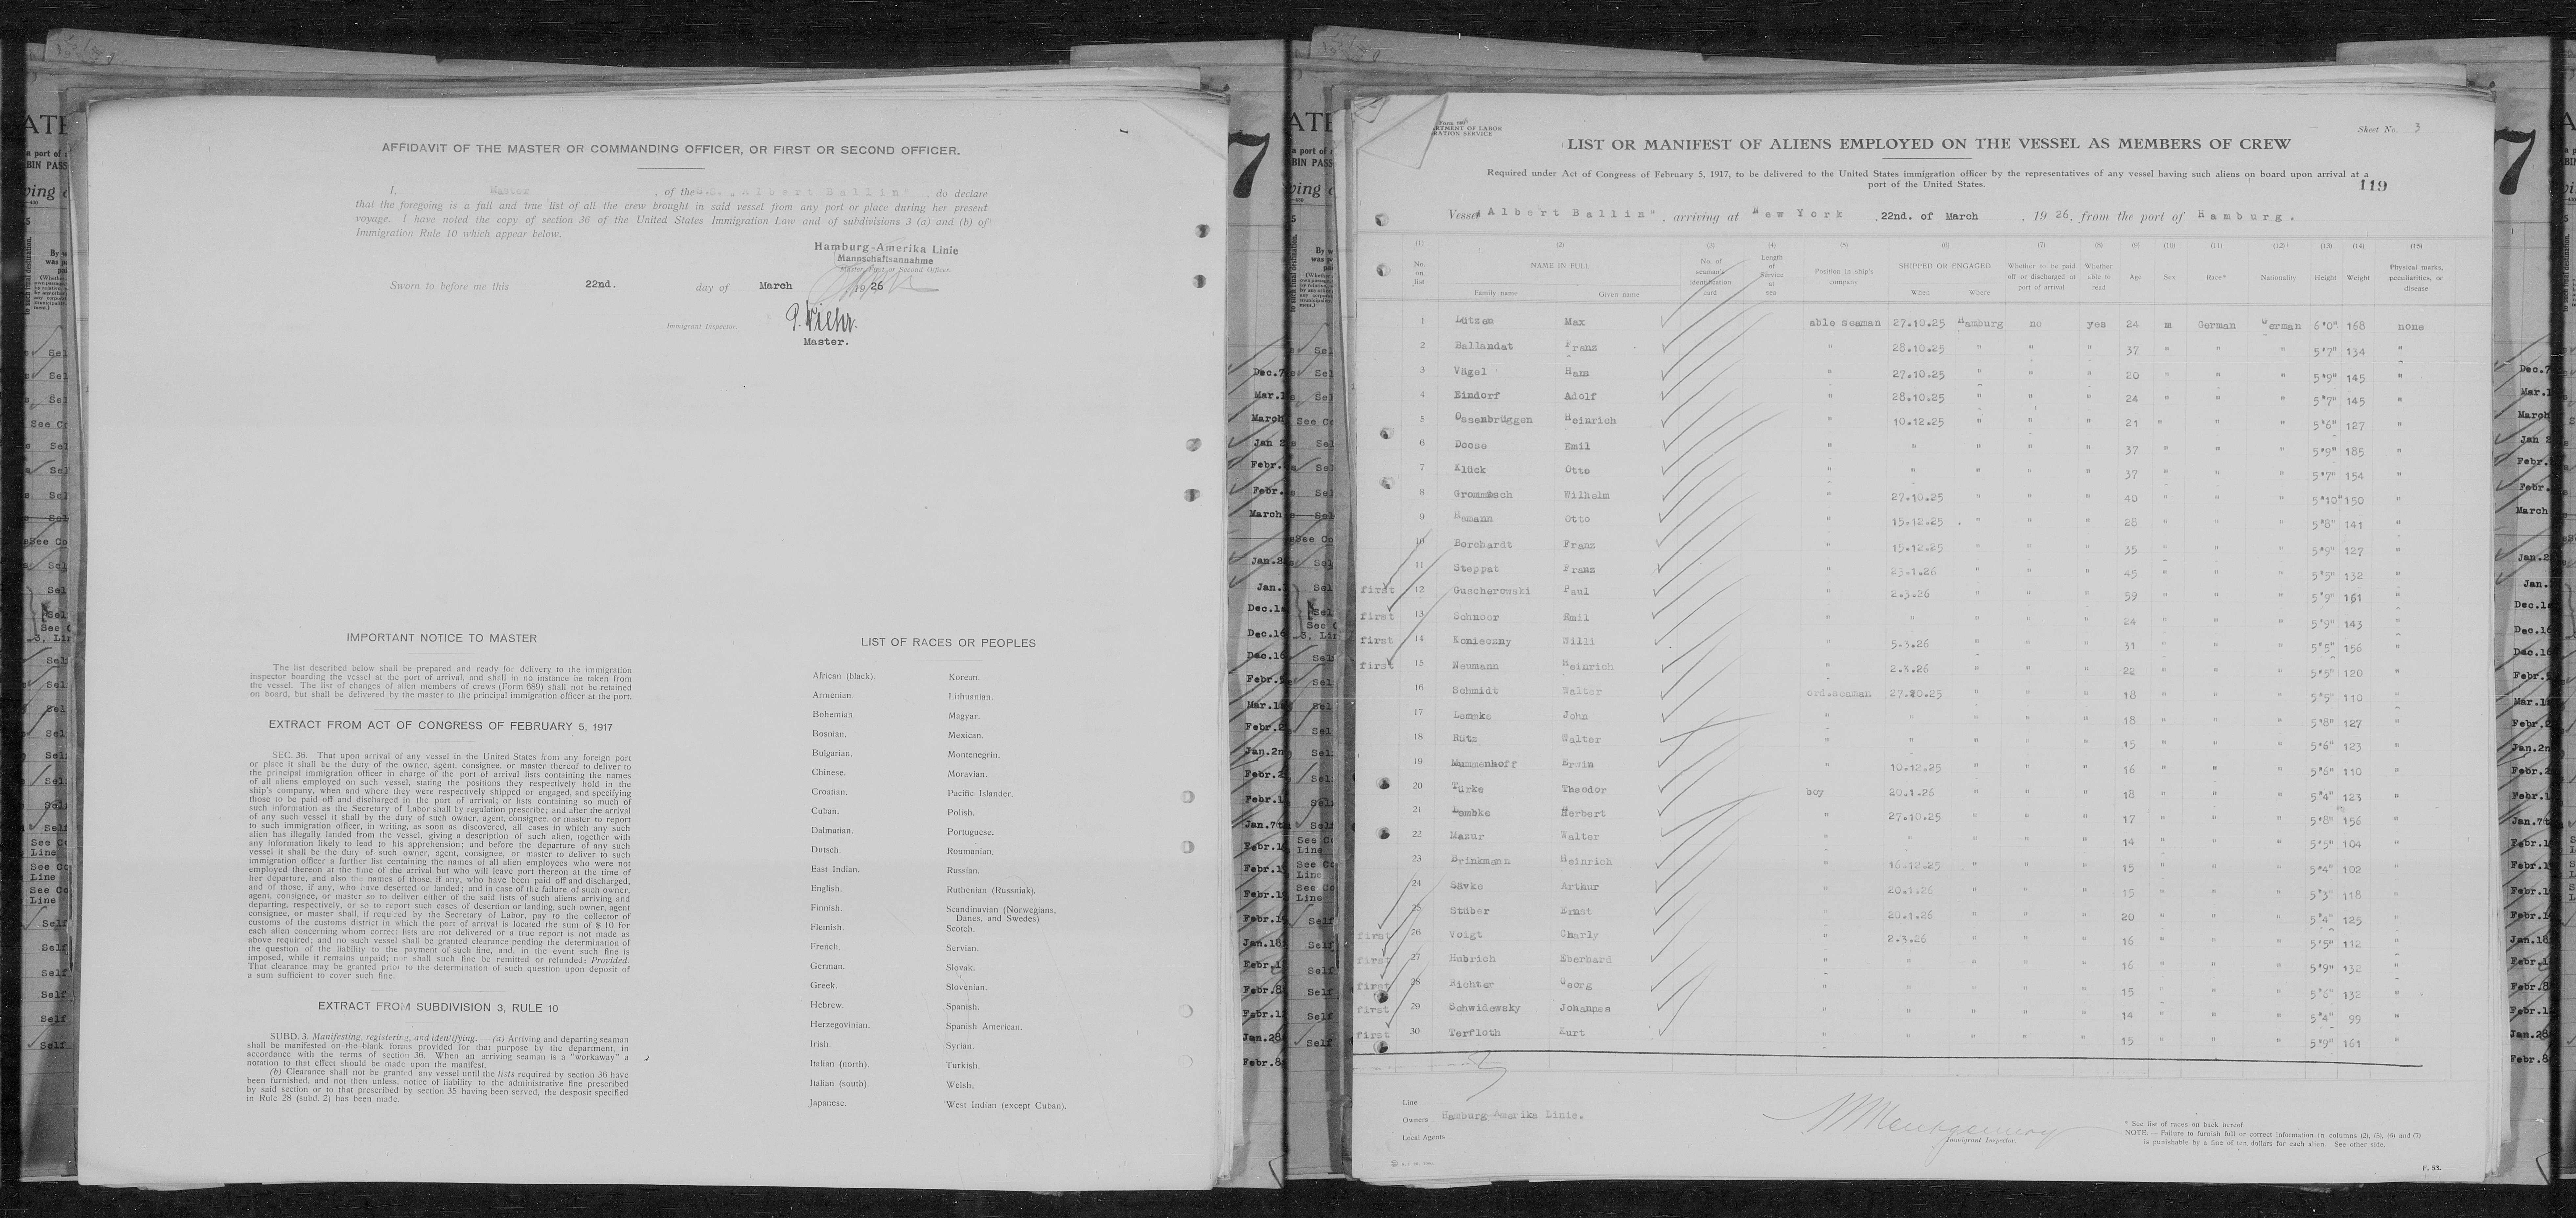 AFFIDAVIT OF THE MASTER OR COMMANDING OFFICER, OR FIRST OR SECOND OFFICER.
I, Master , of the S.S. „Albert Ballin" , do declare
that the foregoing is a full and true list of all the crew brought in said vessel from any port or place during her present
voyage. I have noted the copy of section 36 of the United States Immigration Law and of subdivisions 3 (a) and (b) of
Immigration Rule 10 which appear below.
Hamburg-Amerika Linie
Mannschaftsannahme
Master, First or Second Officer.
Sworn to before me this 22nd. day of March 1926
P. Wiehr.
Immigrant Inspector.
Master.
IMPORTANT NOTICE TO MASTER
The list described below shall be prepared and ready for delivery to the immigration
inspector boarding the vessel at the port of arrival, and shall in no instance be taken from
the vessel. The list of changes of alien members of crews (Form 689) shall not be retained
on board, but shall be delivered by the master to the principal immigration officer at the port.
EXTRACT FROM ACT OF CONGRESS OF FEBRUARY 5, 1917
SEC. 36. That upon arrival of any vessel in the United States from any foreign port
or place it shall be the duty of the owner, agent, consignee, or master thereof to deliver to
the principal immigration officer in charge of the port of arrival lists containing the names
of all aliens employed on such vessel, stating the positions they respectively hold in the
ship's company, when and where they were respectively shipped or engaged, and specifying
those to be paid off and discharged in the port of arrival; or lists containing so much of
such information as the Secretary of Labor shall by regulation prescribe; and after the arrival
of any such vessel it shall be the duty of such owner, agent, consignee, or master to report
to such immigration officer, in writing, as soon as discovered, all cases in which any such
alien has illegally landed from the vessel, giving a description of such alien, together with
any information likely to lead to his apprehension; and before the departure of any such
vessel it shall be the duty of such owner, agent, consignee, or master to deliver to such
immigration officer a further list containing the names of all alien employees who were not
employed thereon at the time of the arrival but who will leave port thereon at the time of
her departure, and also the names of those, if any, who have been paid off and discharged,
and of those, if any, who have deserted or landed; and in case of the failure of such owner,
agent, consignee, or master so to deliver either of the said lists of such aliens arriving and
departing, respectively, or so to report such cases of desertion or landing, such owner, agent
consignee, or master shall, if required by the Secretary of Labor, pay to the collector of
customs of the customs district in which the port of arrival is located the sum of $ 10 for
each alien concerning whom correct lists are not delivered or a true report is not made as
above required; and no such vessel shall be granted clearance pending the determination of
the question of the liability to the payment of such fine, and, in the event such fine is
imposed, while it remains unpaid; nor shall such fine be remitted or refunded: Provided,
That clearance may be granted prior to the determination of such question upon deposit of
a sum sufficient to cover such fine.
EXTRACT FROM SUBDIVISION 3, RULE 10
SUBD. 3. Manifesting, registering, and identifying. — (a) Arriving and departing seaman
shall be manifested on the blank forms provided for that purpose by the department, in
accordance with the terms of section 36. When an arriving seaman is a "workaway" a
notation to that effect should be made upon the manifest.
(b) Clearance shall not be granted any vessel until the lists required by section 36 have
been furnished, and not then unless, notice of liability to the administrative fine prescribed
by said section or to that prescribed by section 35 having been served, the desposit specified
in Rule 28 (subd. 2) has been made.
LIST OF RACES OR PEOPLES
African (black). Korean.
Armenian. Lithuanian.
Bohemian. Magyar.
Bosnian. Mexican.
Bulgarian. Montenegrin.
Chinese. Moravian.
Croatian. Pacific Islander.
Cuban. Polish.
Dalmatian. Portuguese.
Dutsch. Roumanian.
East Indian. Russian.
English. Ruthenian (Russniak).
Finnish. Scandinavian (Norwegians,
Danes, and Swedes)
Flemish. Scotch.
French. Servian.
German. Slovak.
Greek. Slovenian.
Hebrew. Spanish.
Herzegovinian. Spanish American.
Irish Syrian.
Italian (north). Turkish.
Italian (south). Welsh.
Japanese. West Indian (except Cuban).
Sheet No. 3
LIST OR MANIFEST OF ALIENS EMPLOYED ON THE VESSEL AS MEMBERS OF CREW
Required under Act of Congress of February 5, 1917, to be delivered to the United States immigration officer by the representatives of any vessel having such aliens on board upon arrival at a
port of the United States.
119
Vessel Albert Ballin" , arriving at New York , 22nd. of March , 1926, from the port of Hamburg.
(1) (2) (3) (4) (5) (6) (7) (8) (9) (10) (11) (12) (13) (14) (15)
No. on list NAME IN FULL Family name Given name No. of seaman's identification card Length of Service at sea Position in ship's company SHIPPED OR ENGAGED When Where Whether to be paid off or discharged at port of arrival Whether able to read Age Sex Race* Nationality Height Weight Physical marks, peculiarities, or disease
1 Lützen Max able seaman 27.10.25 Hamburg no yes 24 m German German 6'0" 168 none
2 Ballandat Franz " 28.10.25 " " " 37 " " " 5'7" 134 "
3 Vägel Ham " 27.10.25 " " " 20 " " " 5'9" 145 "
4 Eindorf Adolf " 28.10.25 " " " 24 " " " 5'7" 145 "
5 Ossenbrüggen Heinrich " 10.12.25 " " " 21 " " " 5'6" 127 "
6 Doose Emil " " " " " 37 " " " 5'9" 185 "
7 Klück Otto " " " " " 37 " " " 5'7" 154 "
8 Wilhelm " 27.10.25 " " " 40 " " " 5'10" 150 "
9 Hamann Otto " 15.12.25 " " " 28 " " " 5'8" 141 "
10 Borchardt Franz " 15.12.25 " " " 35 " " " 5'9" 127 "
11 Steppat Franz " 23.1.26 " " " 45 " " " 5'5" 132 "
first 12 Guscherowski Paul " 2.3.26 " " " 59 " " " 5'9" 161 "
first 13 Schnoor Emil " " " " " 24 " " " 5'9" 143 "
first 14 Konieczny Willi " 5.3.26 " " " 31 " " " 5'5" 156 "
first 15 Neumann Heinrich " 2.3.26 " " " 22 " " " 5'5" 120 "
16 Schmidt Walter ord.seaman 27.10.25 " " " 18 " " " 5'5" 110 "
17 Lemske John " " " " " 18 " " " 5'8" 127 "
18 Rütz Walter " " " " " 15 " " " 5'6" 123 "
19 Mummenhoff Erwin " 10.12.25 " " " 16 " " " 5'6" 110 "
20 Türke Theodor boy 20.1.26 " " " 18 " " " 5'4" 123 "
21 Lembke Herbert " 27.10.25 " " " 17 " " " 5'8" 156 "
22 Mazur Walter " " " " " 14 " " " 5'5" 104 "
23 Brinkmann Heinrich " 16.12.25 " " " 15 " " " 5'4" 102 "
24 Sävke Arthur " 20.1.26 " " " 15 " " " 5'3" 118 "
25 Stüber Ernst " 20.1.26 " " " 20 " " " 5'4" 125 "
first 26 Voigt Charly " 2.3.26 " " " 16 " " " 5'5" 112 "
first 27 Hubrich Eberhard " " " " " 16 " " " 5'9" 132 "
first 28 Richter Georg " " " " " 15 " " " 5'6" 132 "
first 29 Schwidewsky Johannes " " " " " 14 " " " 5'4" 99 "
first 30 Terfloth Kurt " " " " " 15 " " " 5'9" 161 "
Line
Owners Hamburg-Amerika Linie.
Local Agents
Montgomery
Immigrant Inspector.
* See list of races on back hereof.
NOTE. — Failure to furnish full or correct information in columns (2), (5), (6) and (7)
is punishable by a fine of ten dollars for each alien. See other side.
F. 53.